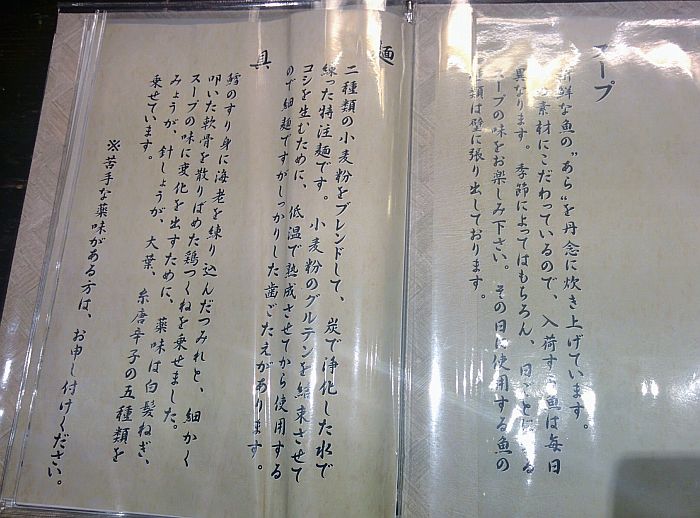 スープ
新鮮な魚の"あら"を丹念に炊き上げています。
素材にこだわっているので、入荷する魚は毎日
異なります。季節によってはもちろん、日ごとに
スープの味をお楽しみ下さい。その日に使用する魚の
種類は壁に張り出しております。
麺
二種類の小麦粉をブレンドして、炭で浄化した水で
練った特注麺です。小麦粉のグルテンを結束させて
コシを生むために、低温で熟成させてから使用する
ので細麺ですがしっかりした歯ごたえがあります。
具
鱈のすり身に海老を練り込んだつみれと、細かく
叩いた軟骨を散りばめた鶏つくねを乗せました。
スープの味に変化を出すために、薬味は白髪ねぎ、
みょうが、針しょうが、大葉、糸唐辛子の五種類を
乗せています。
※苦手な薬味がある方は、お申し付けください。